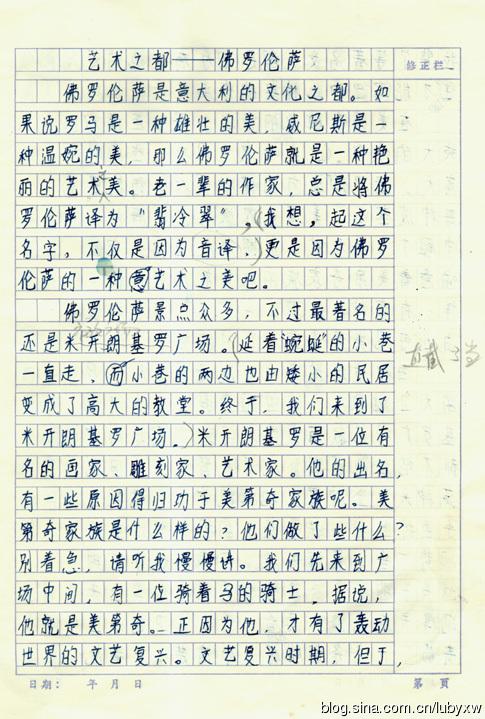 艺术之都——佛罗伦萨
修正栏
佛罗伦萨是意大利的文化之都。如
果说罗马是一种雄壮的美，威尼斯是一
种温婉的美，那么佛罗伦萨就是一种艳
丽的艺术美。老一辈的作家，总是将佛
罗伦萨译为“翡冷翠”（我想，起这个
名字，不仅是因为音译，）更是因为佛罗
伦萨的一种艺术之美吧。
佛罗伦萨景点众多，不过最著名的
还是米开朗基罗广场。（延着“蜿蜒”的小巷
一直走，而小巷的两边也由矮小的民居
直截了当
变成了高大的教堂。终于，我们来到了
米开朗基罗广场。）米开朗基罗是一位有
名的画家、雕刻家、艺术家。他的出名，
有一些原因得归功于美第奇家族呢。美
第奇家族是什么样的？他们做了些什么？
别着急，请听我慢慢讲。我们先来到广
场中间，有一位骑着马的骑士，据说，
他就是美第奇。正因为他，才有了轰动
世界的文艺复兴。文艺复兴时期，但于，
日期： 年 月 日 第 页
blog.sina.com.cn/lubyxw